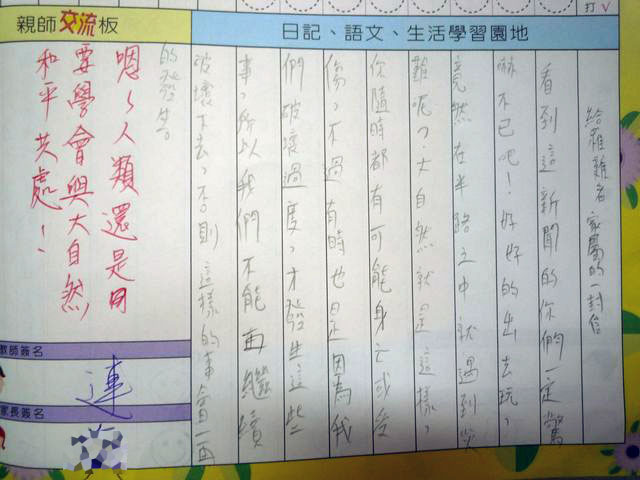 打
親師交流板
日記、語文、生活學習園地
給罹難者家屬的一封信
看到這新聞的你們一定驚
嚇不已吧!好好的出去玩,
竟然在半路之中就遇到災
難呢?大自然就是這樣,
你隨時都有可能身亡或受
傷,不過有時也是因為我
們破壞過度,才發生這些
事,所以我們不能再繼續
破壞下去,否則這樣的事會一再
的發
嗯~人類還是
要學會與大自然
和平共處!
教師簽名
連
家長簽名